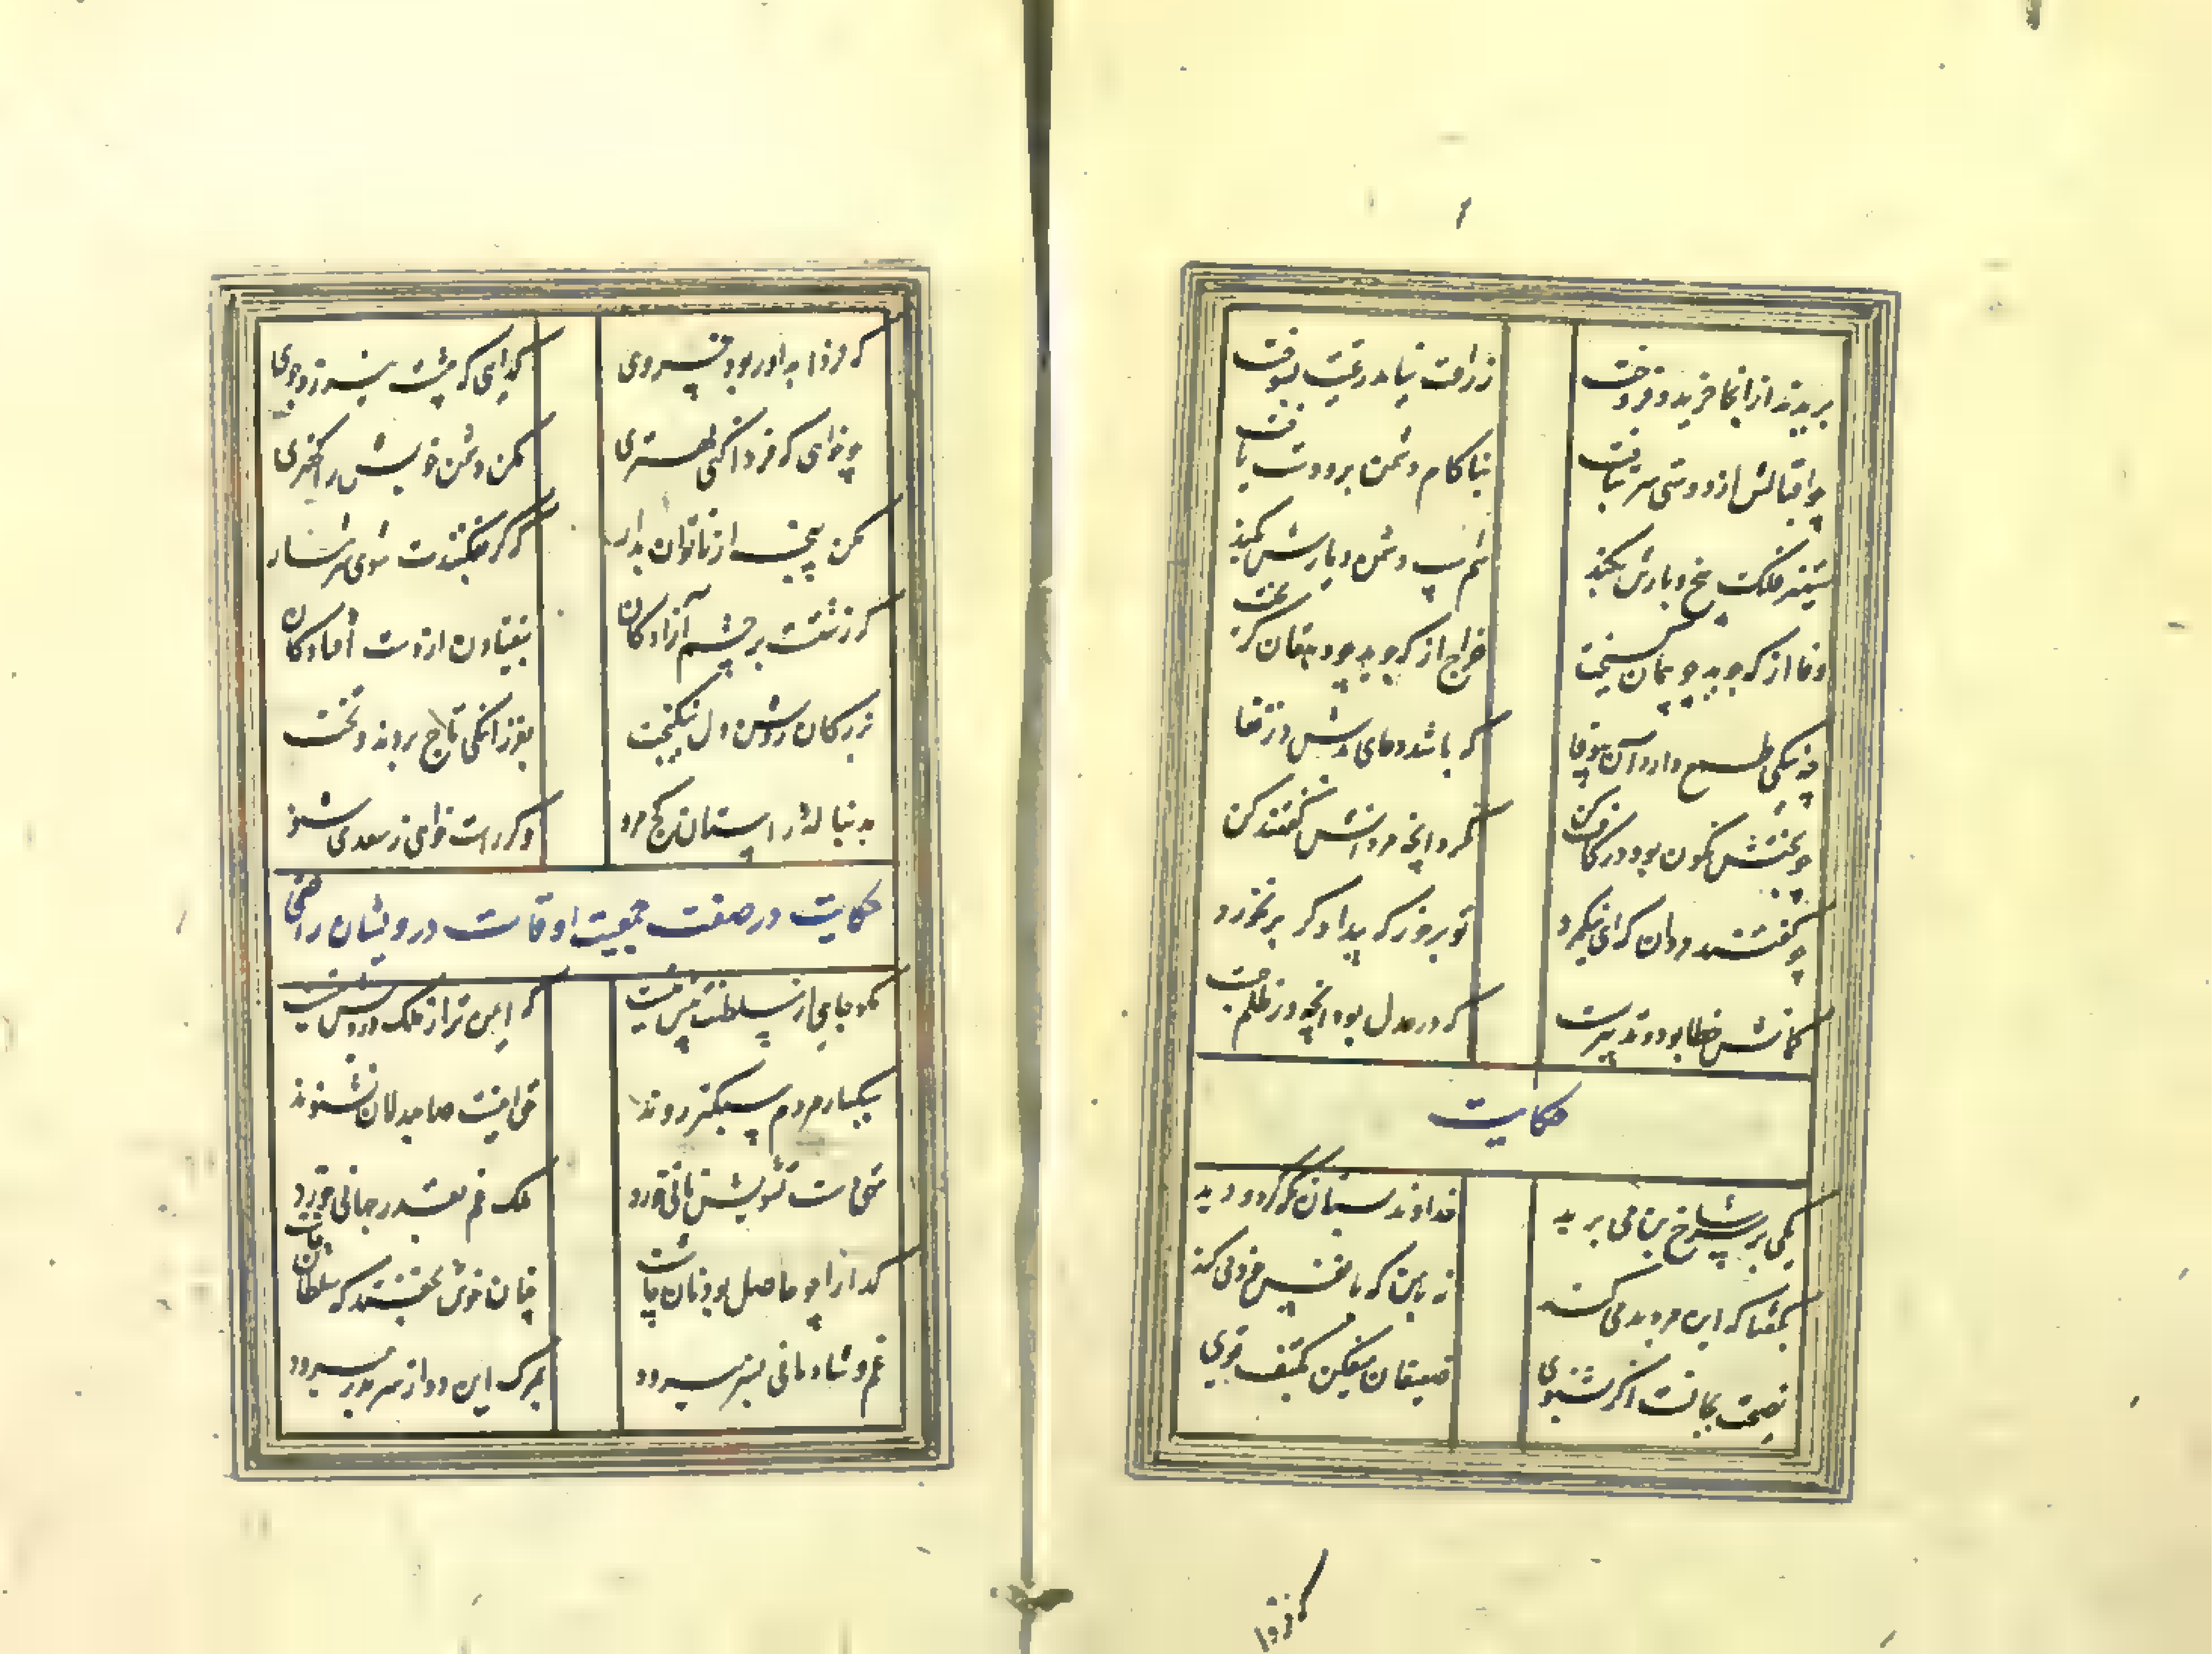 بریدند ازانجا خرید و فروخت
زراعت نیامد رعیت بسوخت
چو اقبالش از دوستی سر بتافت
بناکام دشمن برو دست یافت
ستیز فلک بیخ و بارش بکند
سم اسپ دشمن دیارش بکند
وفا از که جوید چو پیمان گسیخت
خراج از که جوید چو دهقان گریخت
چه نیکی طمع دارد آن بیوفا
که باشد دعای بدش در قفا
چو بختش نگون بود در کاف کن
نکرد انچه مردانش گفتند کن
چو گفتند مردان که ای نیکمرد
تو برخور که بیدادگر برنخورد
گمانش خطا بود و تدبیر سست
که در عدل بود انچه در ظلم جست
حکایت
یکی بر سر شاخ بن می برید
خداوند بستان نگه کرد و دید
بگفتا که این مرد بد می کند
نه بمن که با نفس خود می کند
نصیحت بجانست اگر بشنوی
ضعیفان میفکن بکتف قوی
که فردا
که فردا بداور بود خسروی
گدایی که پیشت نیرزد جوی
چو خواهی که فردا کنی مهتری
مکن دشمن خویش را کهتری
مکن پنجه از ناتوان بدار
که گر بفکنندت شوی شرمسار
که زشتست بر چشم آزادگان
بیفتادن از دست افتادگان
بزرگان روشن دل نیکبخت
بفرزانگی تاج بردند و تخت
بدنباله راستان کج مرو
وگر راست خواهی ز سعدی شنو
حکایت در صفت جمعیت اوقات درویشان راضی
مگو جاهی از سلطنت بیش نیست
که ایمن تر از ملک درویش نیست
سبکبار مردم سبکتر روند
حق اینست صاحبدلان بشنوند
تهی دست تشویش نانی خورد
ملک غم بقدر جهانی خورد
گدا را چو حاصل بود نان چاشت
چنان خوش بخفتد که سلطان
غم و شادمانی بسر میرود
بمرگ این دو از سر بدر میرود